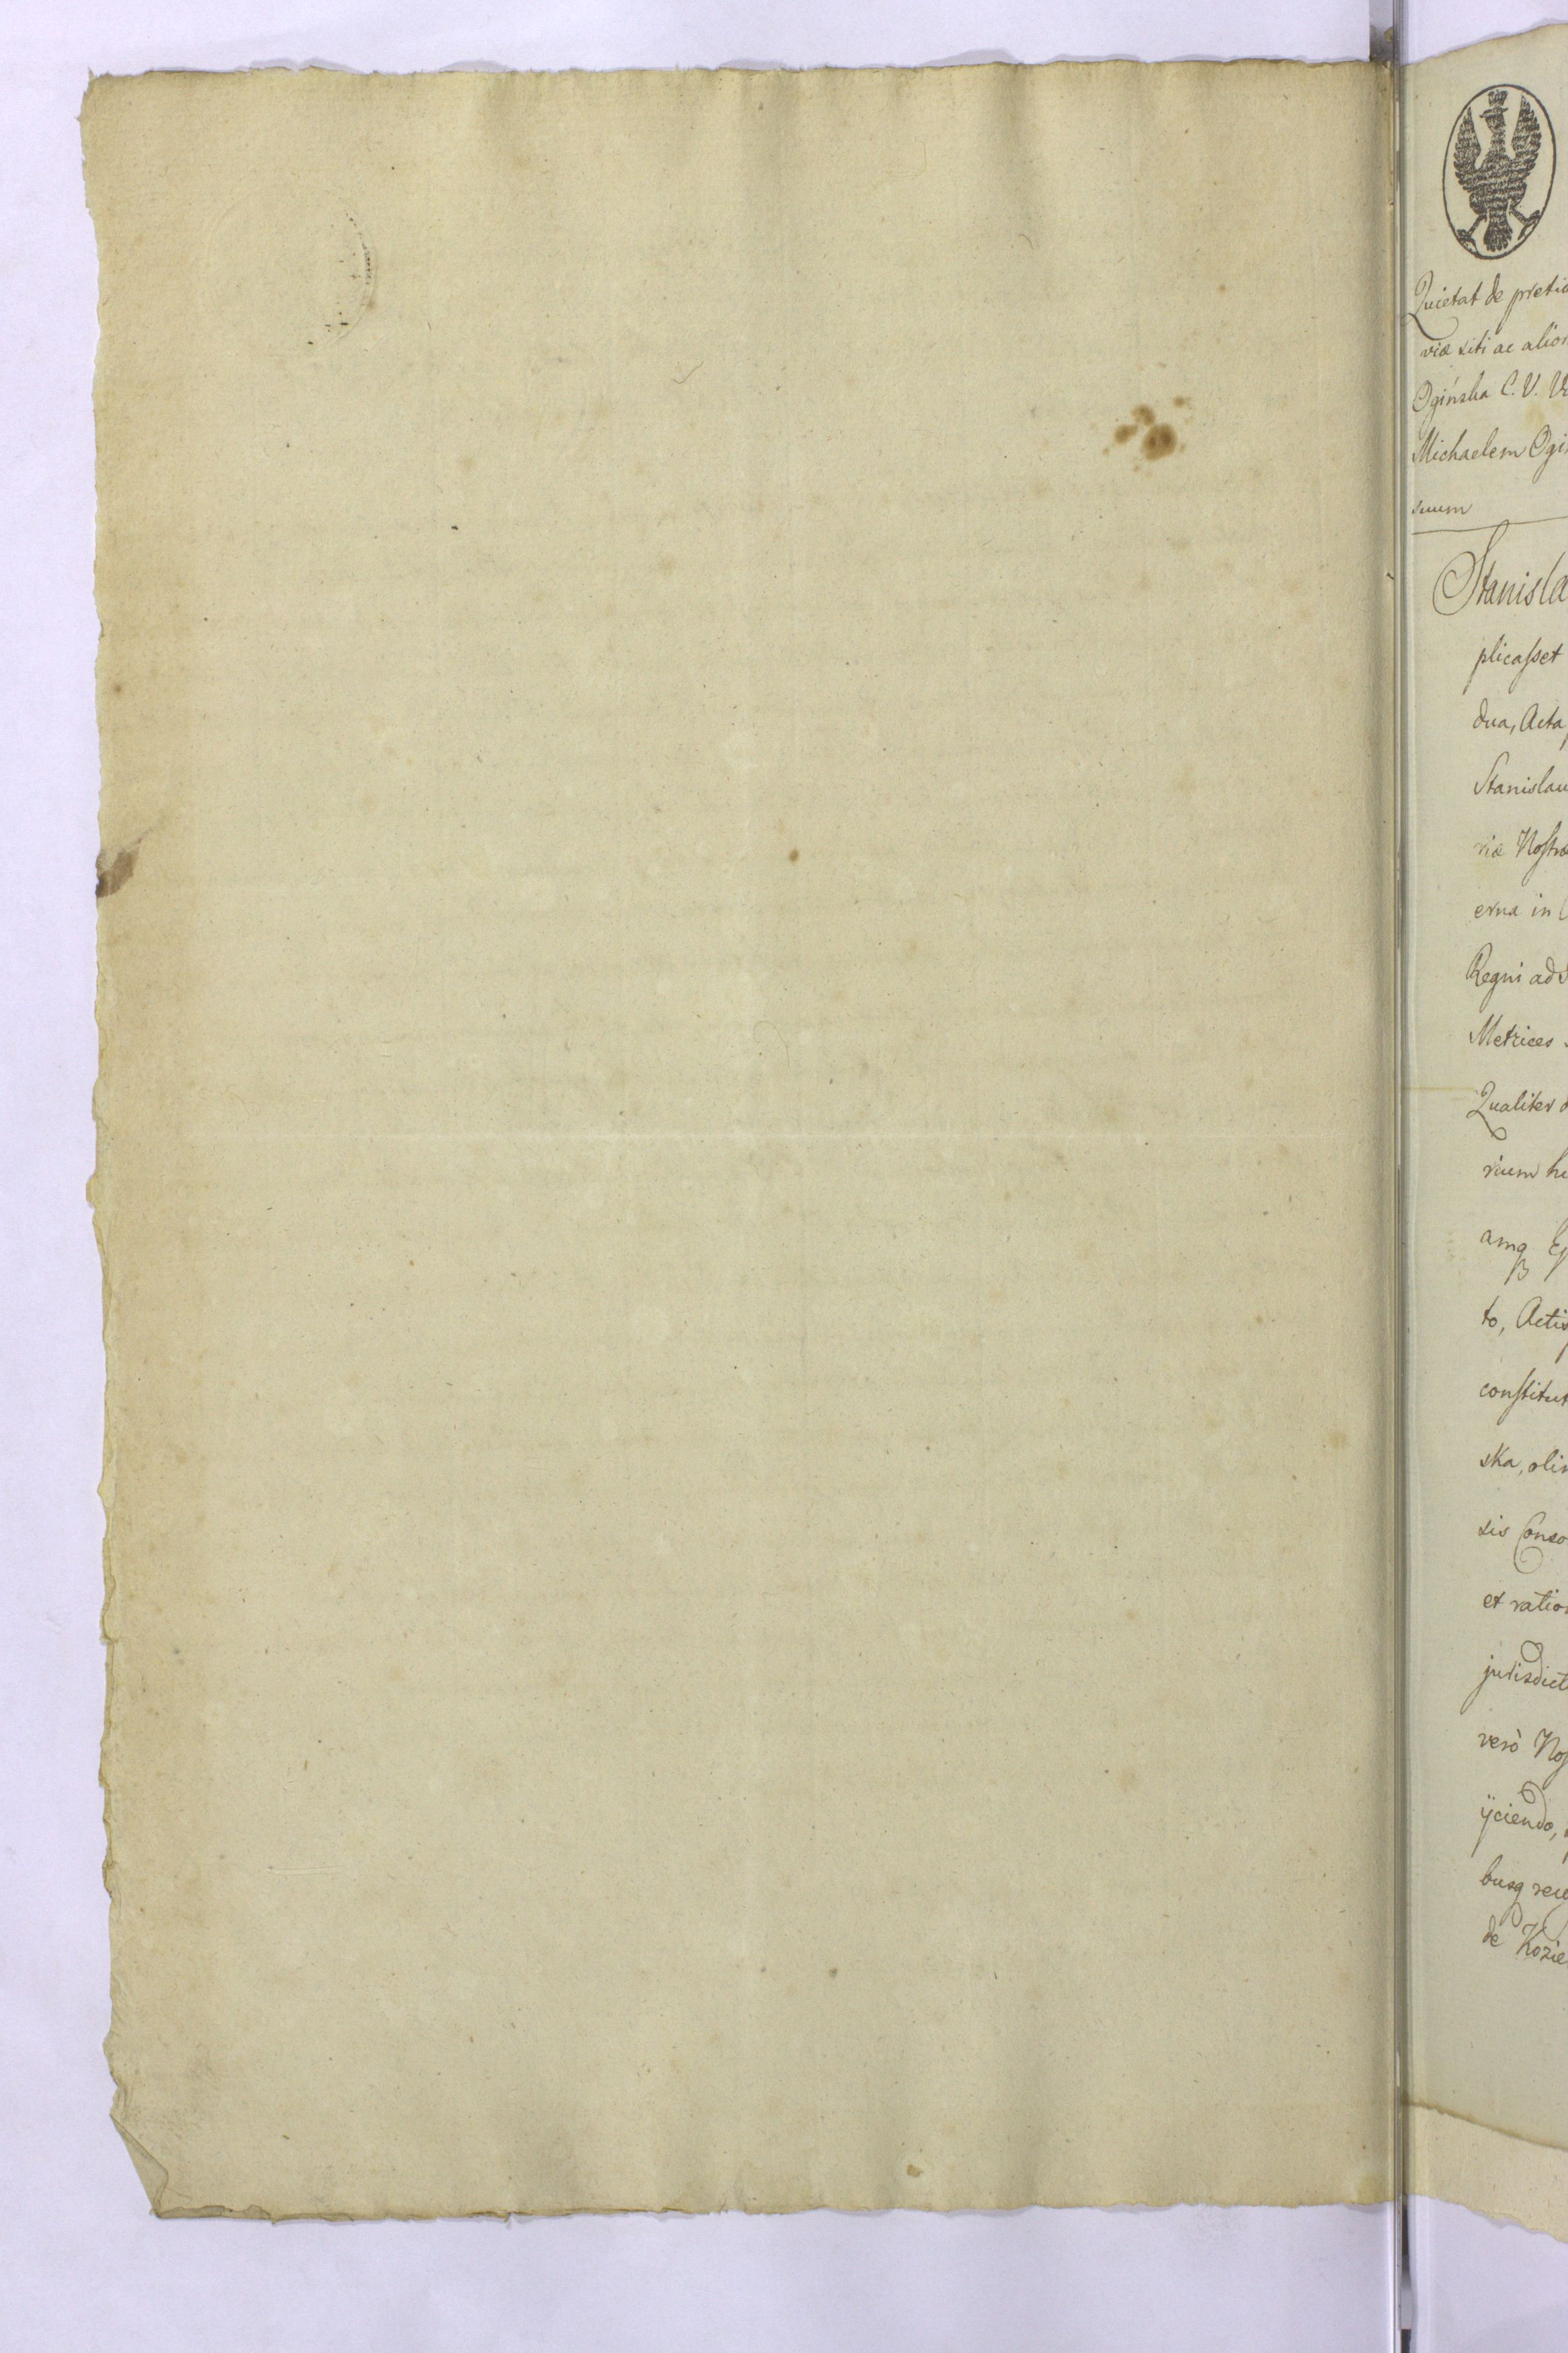 Quietat de pretio
viæ siti ac alior
Ogińska C. V.
Michaelem Ogi
suum
Stanisla
plicasset
dua, Acta
Stanislau
riæ Nostræ
erna in
Regni ad
Metrices
Qualiter
rium hu
amq
to, Actis
constitut
ska, olim
sis Conso
et ration
jurisdict
verò Nos
ijciendo,
busq
de Kozie